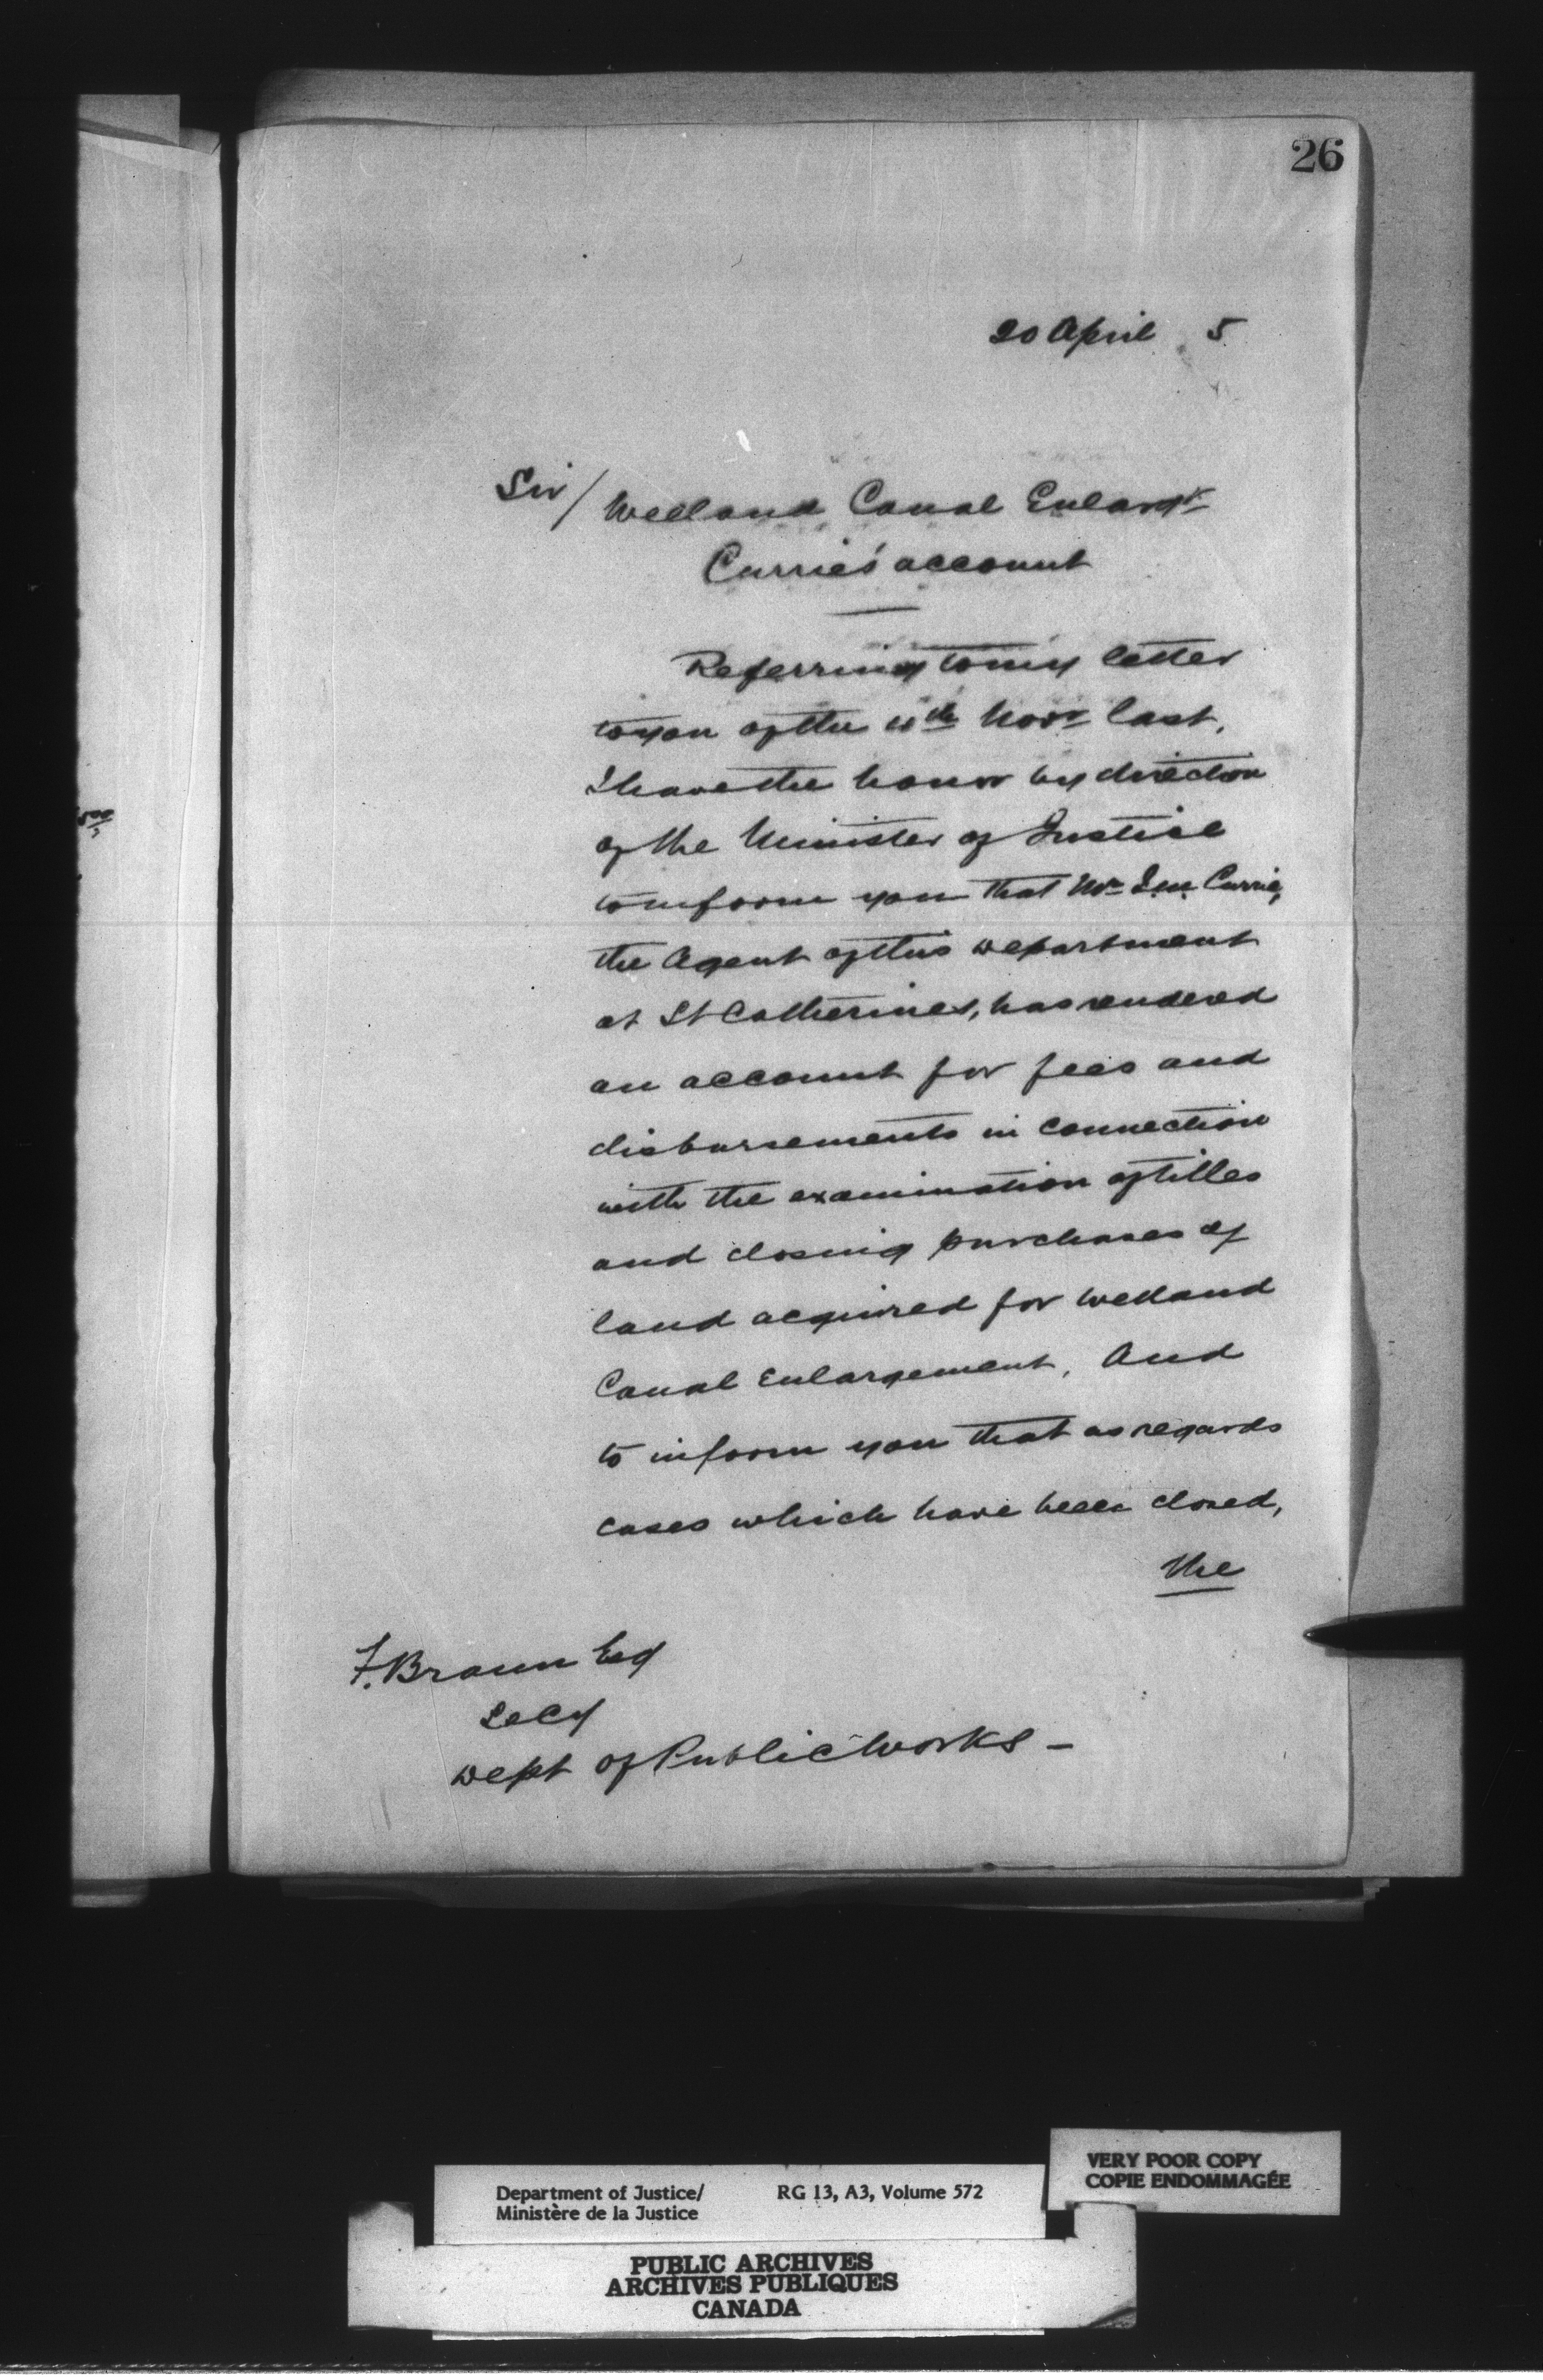 26
20 April 5
Sir/
Welland Canal Enlargt
Currie's account
Referring to my letter
to you of the 11th Novr last,
I have the honor by direction
of the Minister of Justice
to inform you that Mr Currie,
the Agent of this Department
at St Catherines, has rendered
an account for fees and
disbursements in connection
with the examination of titles
and closing purchases of
land acquired for Welland
Canal Enlargement, And
to inform you that as regards
cases which have been closed,
the
F. Braun Esq
Secy
Dept of Public Works -
VERY POOR COPY
COPIE ENDOMMAGÉE
Department of Justice/ RG 13, A3, Volume 572
Ministère de la Justice
PUBLIC ARCHIVES
ARCHIVES PUBLIQUES
CANADA